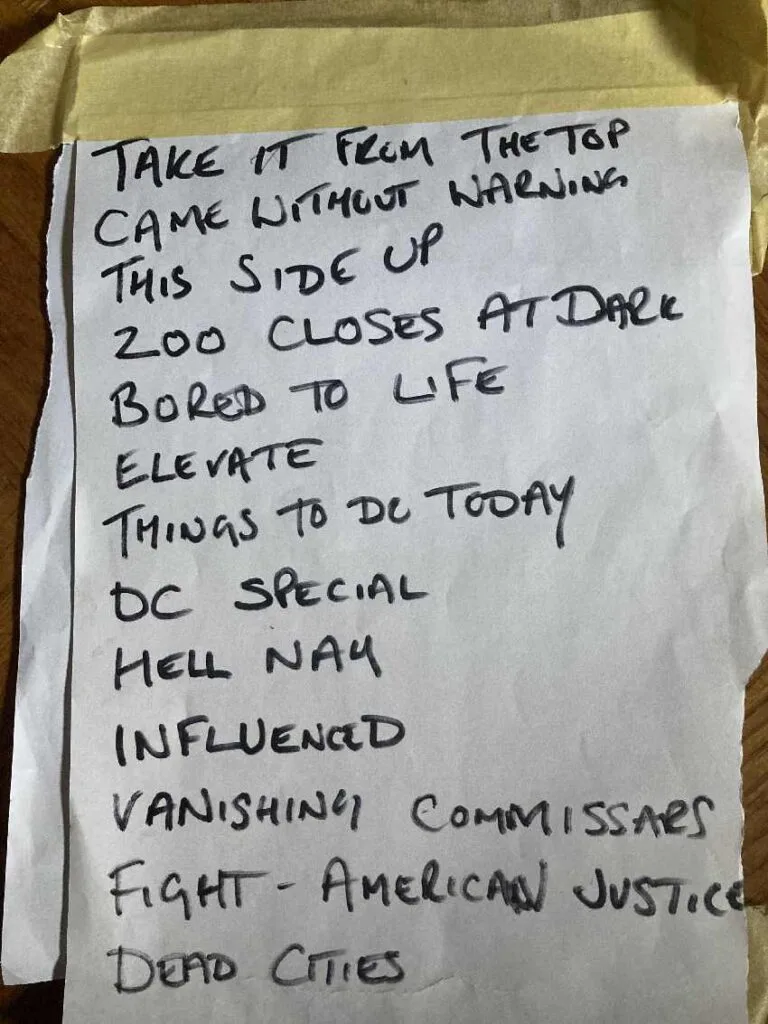 TAKE IT FROM THE TOP
CAME WITHOUT WARNING
THIS SIDE UP
ZOO CLOSES AT DARK
BORED TO LIFE
ELEVATE
THINGS TO DO TODAY
DC SPECIAL
HELL NAY
INFLUENCED
VANISHING COMMISSARS
FIGHT - AMERICAN JUSTICE
DEAD CITIES